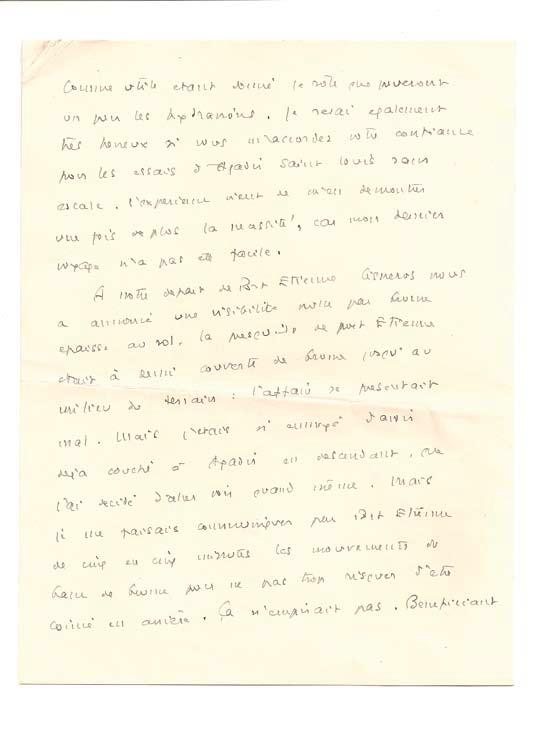 comme utile etant donné le role que peuvent
un peu les hydravions. Je serai egalement
très heureux si vous m'accordez votre confiance
pour les essais d'Agadir Saint Louis sans
escale. L'experience vient de m'en demontrer
une fois de plus la necessité, car mon dernier
voyage n'a pas eté facile.
A notre depart de Port Etienne Cisneros nous
a annoncé une visibilité nulle par brume
epaisse au sol. La presqu'ile de Port Etienne
etait à demi couverte de brume jusqu'au
milieu du terrain : l'affaire se presentait
mal. Mais j'etais si ennuyé d'avoir
deja couché à Agadir en descendant, que
j'ai decidé d'aller voir quand même. Mais
je me faisais communiquer par Port Etienne
de cinq en cinq minutes les mouvements du
banc de brume pour ne pas trop risquer d'etre
coincé en arrière. Ça n'empirait pas. Beneficiant